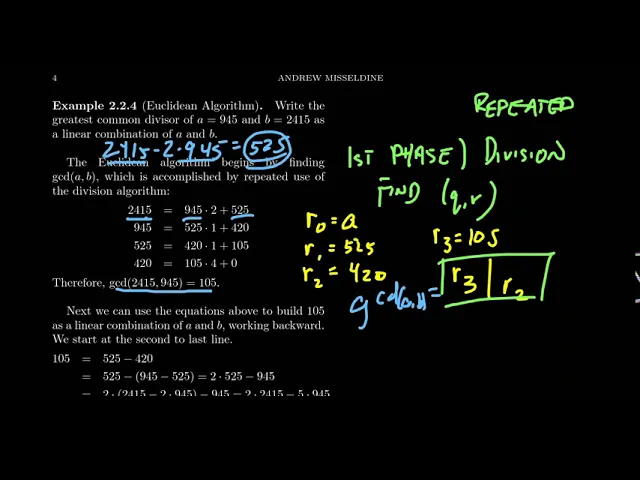 4 ANDREW MISSELDINE
Example 2.2.4 (Euclidean Algorithm). Write the
greatest common divisor of a = 945 and b = 2415 as
a linear combination of a and b.
2415 - 2·945 = 525
The Euclidean algorithm begins by finding
gcd(a, b), which is accomplished by repeated use of
the division algorithm:
2415 = 945 · 2 + 525
945 = 525 · 1 + 420
525 = 420 · 1 + 105
420 = 105 · 4 + 0
Therefore, gcd(2415, 945) = 105.
Next we can use the equations above to build 105
as a linear combination of a and b, working backward.
We start at the second to last line.
105 = 525 − 420
= 525 − (945 − 525) = 2 · 525 − 945
= 2 · (2415 − 2 · 945) − 945 = 2 · 2415 − 5 · 945
REPEATED
1ST PHASE) DIVISION
FIND (q,r)
r₀ = a
r₁ = 525
r₂ = 420
r₃ = 105
gcd(a,b) = r₃ | r₂